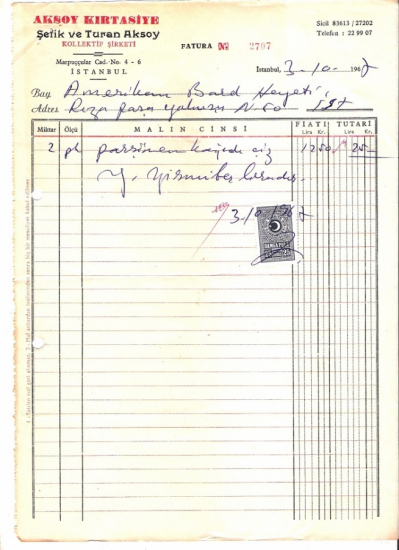 AKSOY KIRTASİYE
Şefik ve Turan Aksoy
KOLLEKTİF ŞİRKETİ
Marpuççular Cad. No. 4 - 6
İSTANBUL
FATURA No 2707
Sicil 83613 / 27202
Telefon : 22 99 07
İstanbul, 3-10-1967
Bay Amerikan Bord Heyeti,
Adres Rıza paşa yokuşu N. 50 İST
Miktar Ölçü MALIN CİNSİ FİATI TUTARI
Lira Kr. Lira Kr.
2 pl 12 50 25 -
Y. Yirmibeş liradır.
3-10-1967